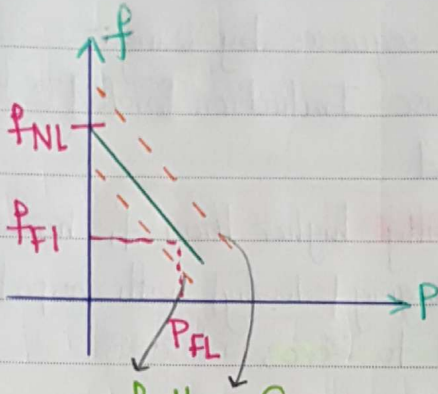 f
f_NL
f_Fl
P
P_FL